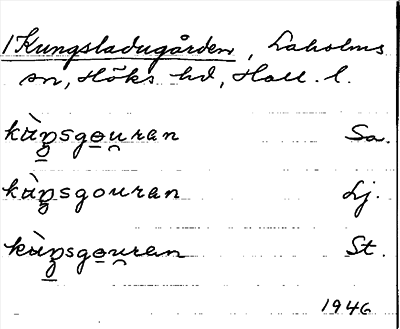 1 Kungsladugården, Laholms
sn, Höks hd, Hall. l.
kùŋsgouran Sa.
kùŋsgouran Lj.
kùŋsgouran St.
1946